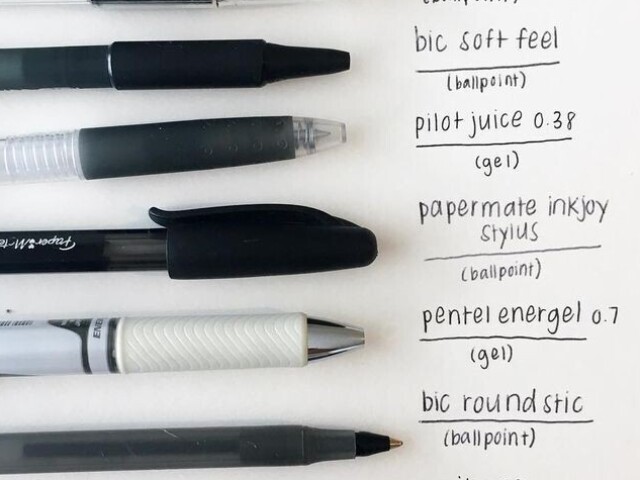 (ballpoint)
bic soft feel
(ballpoint)
pilot juice 0.38
(gel)
papermate inkjoy
stylus
(ballpoint)
Paper M
pentel energel 0.7
(gel)
ENER
bic round stic
(ballpoint)